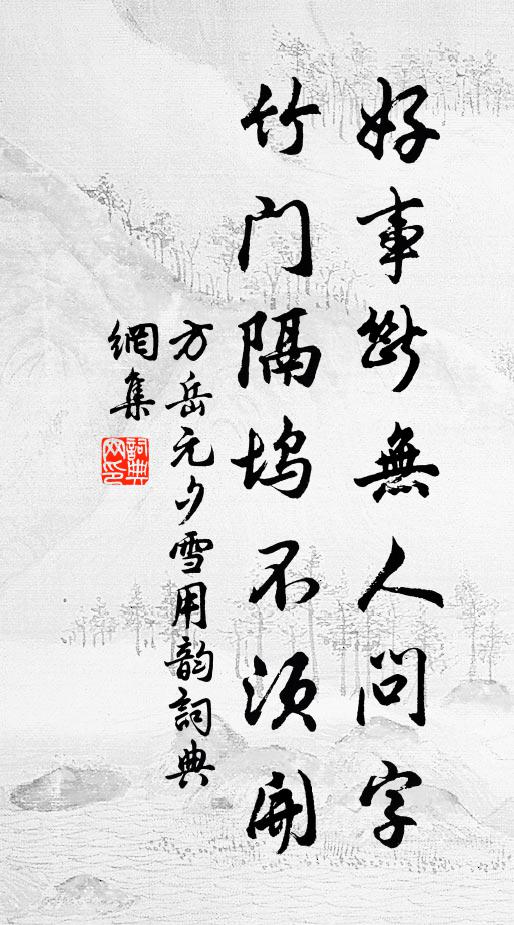 好事断無人問字
竹门隔坞不须開
方岳元夕雪用韵詞典
網集
詞典
网印